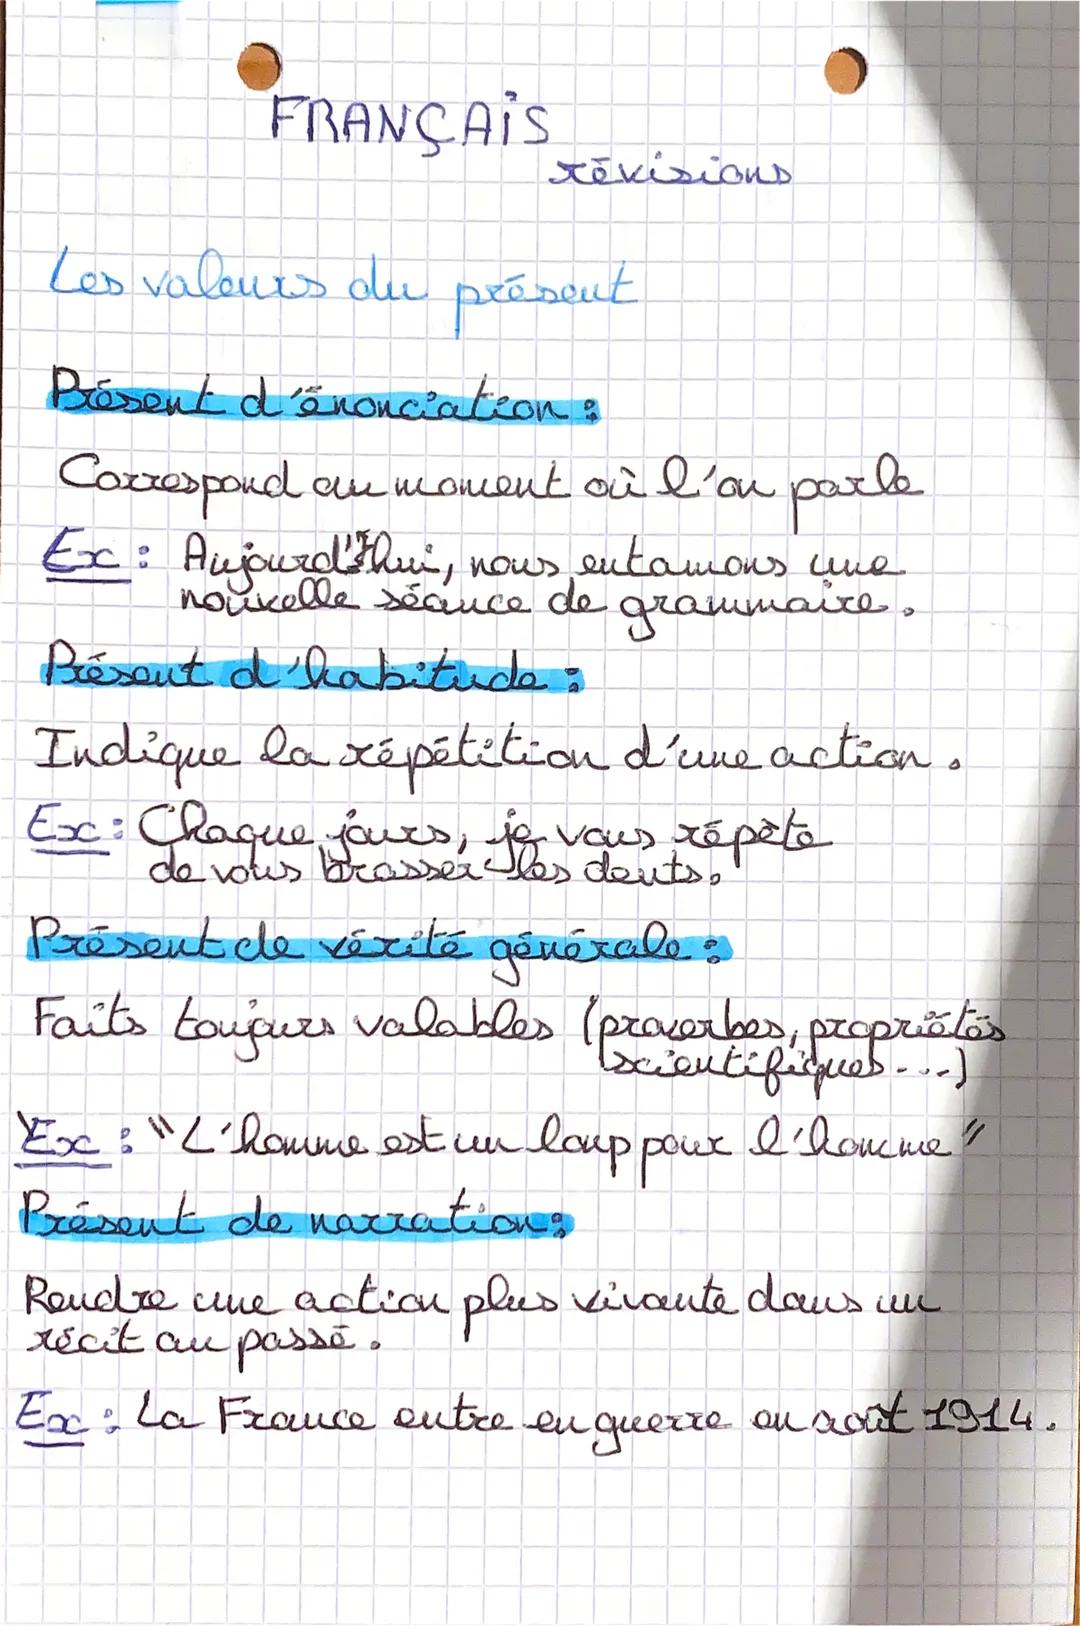 FRANÇAIS
révisions
Les valeurs du présent
Présent d'énonciation :
Correspond au moment où l'on parle
Ex : Aujourd'hui, nous entamons une
nouvelle séance de grammaire.
Présent d'habitude :
Indique la répétition d'une action.
Ex : Chaque jours, je vous répète
de vous brosser les dents.
Présent de vérité générale :
Faits toujours valables (proverbes, propriétés
scientifiques...)
Ex : "L'homme est un loup pour l'homme"
Présent de narration :
Rendre une action plus vivante dans un
récit au passé.
Ex : La France entre en guerre en août 1914.